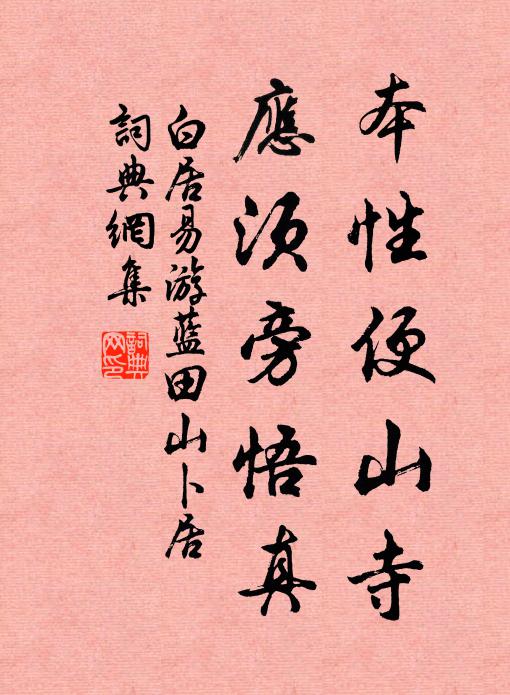 本性便山寺
應須旁悟真
白居易游蓝田山卜居
詞典網集
詞典網印